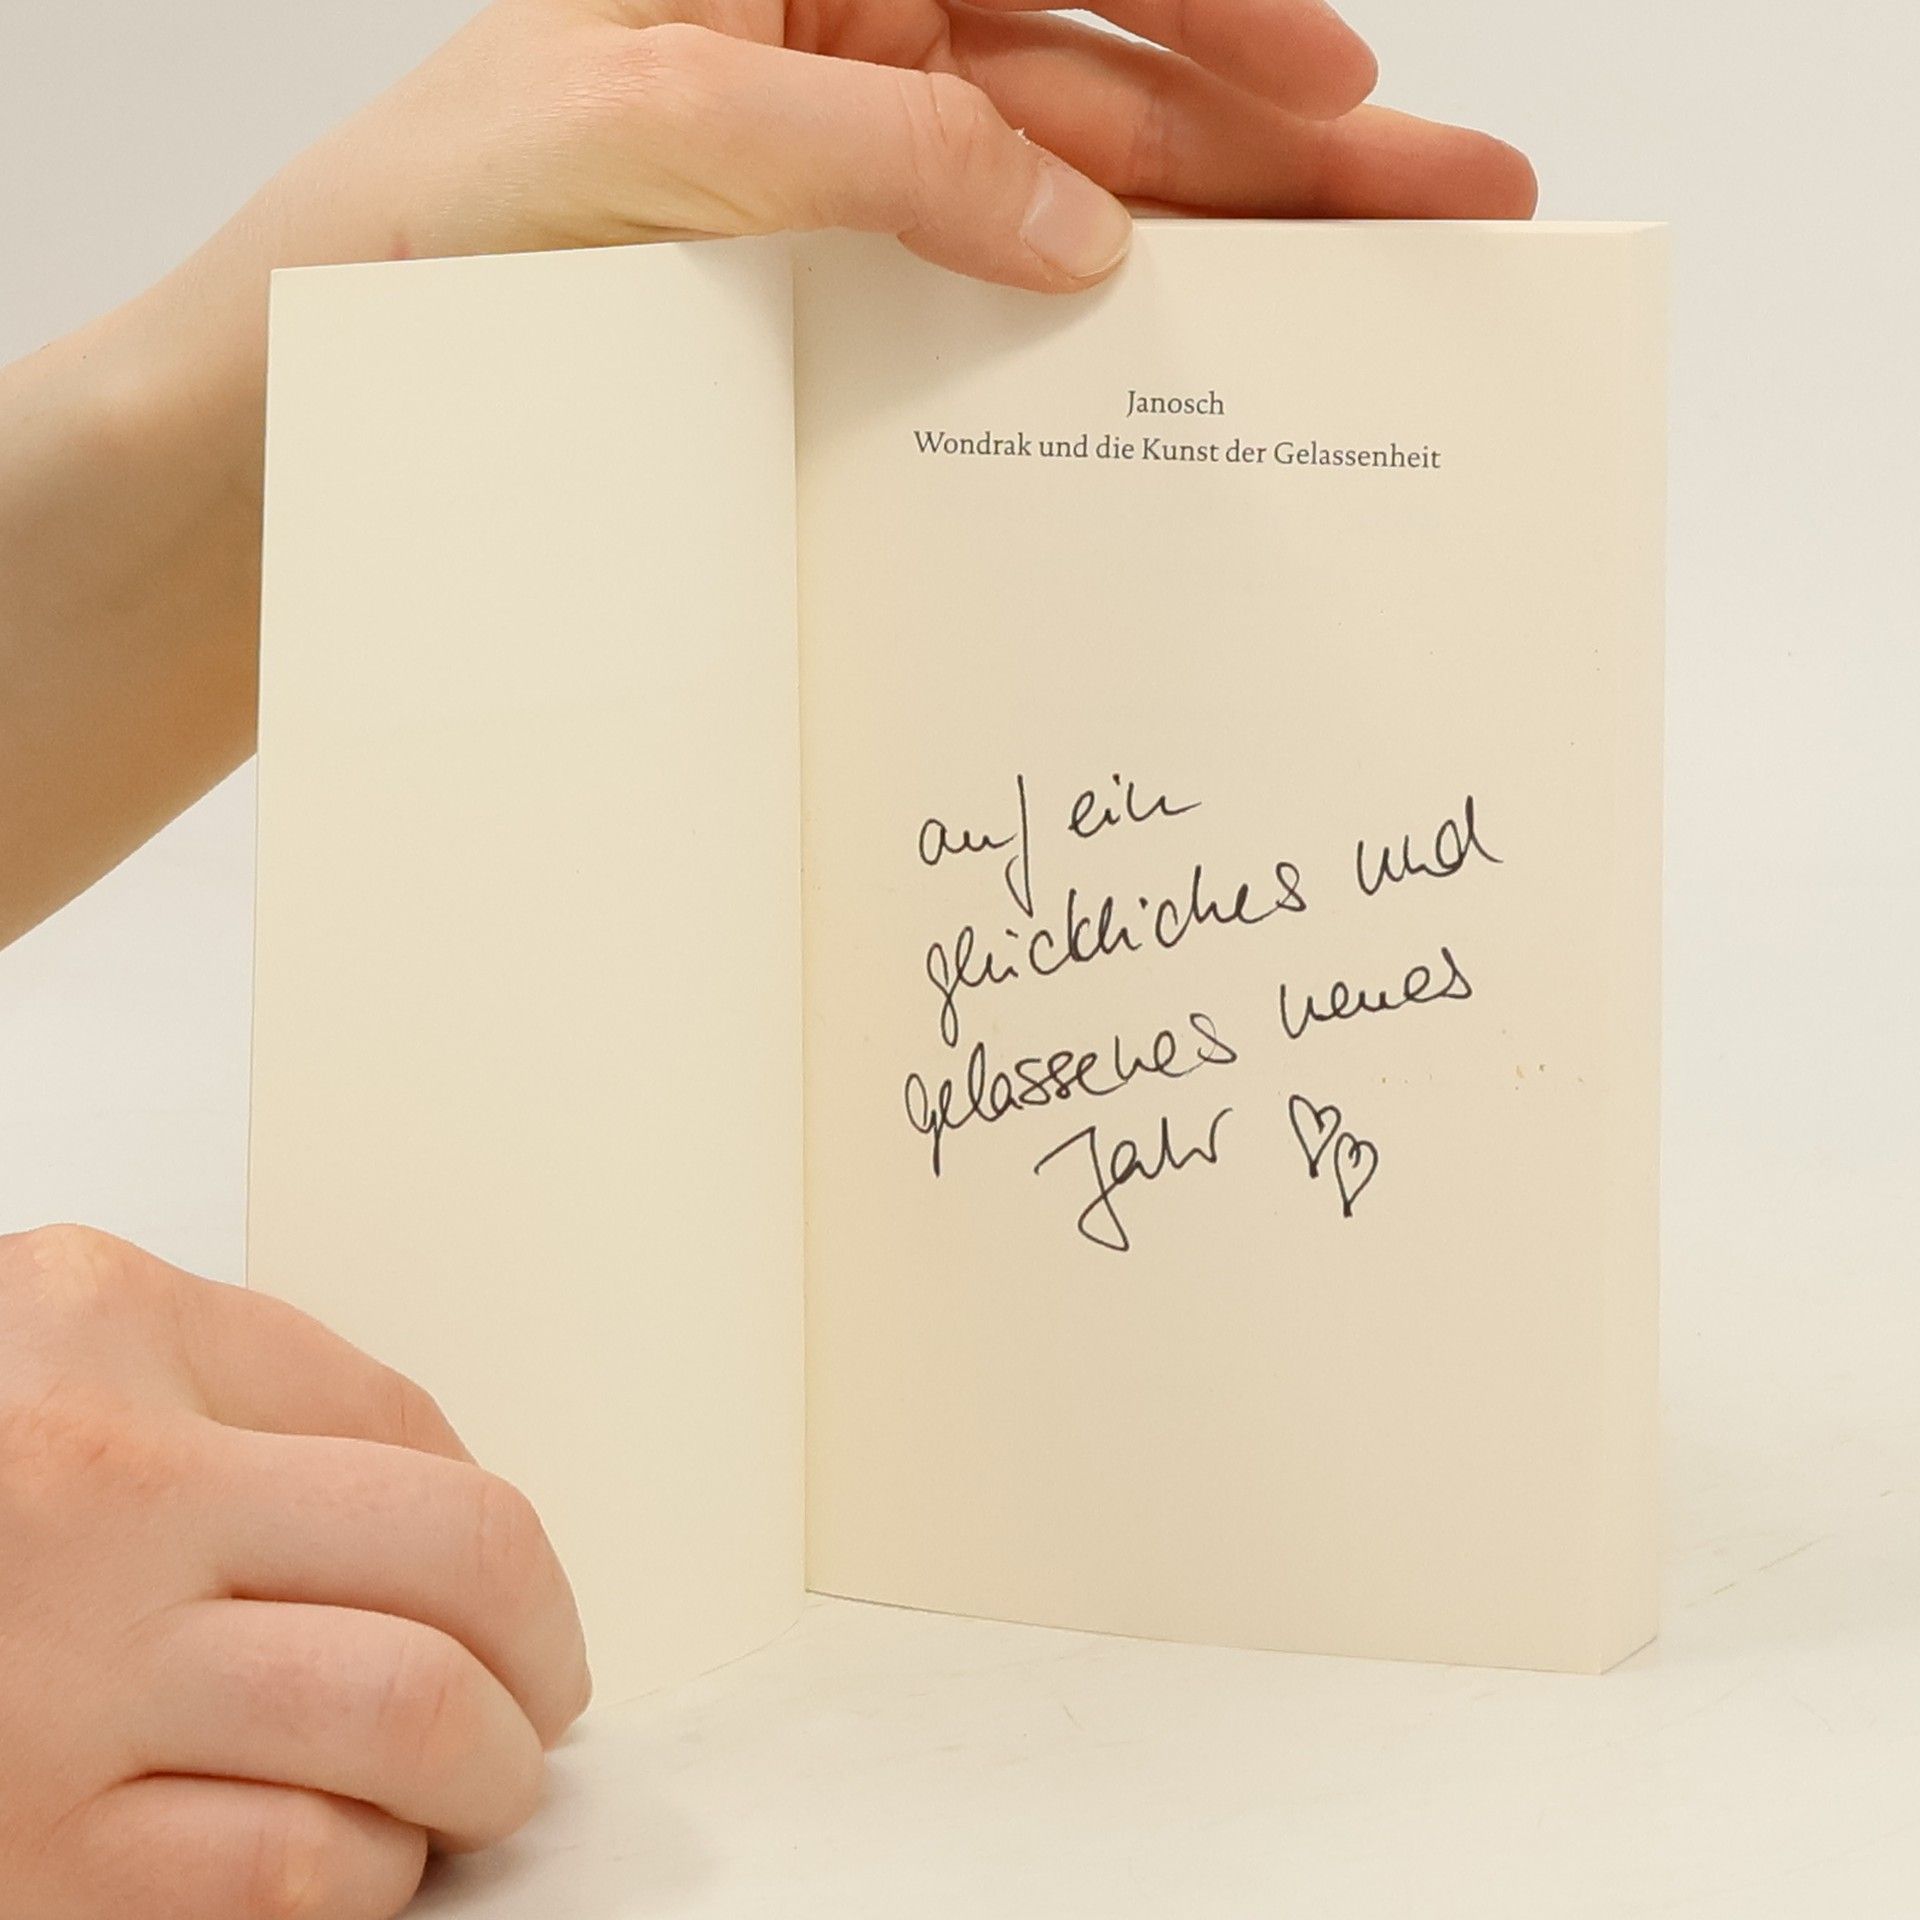 Janosch
Wondrak und die Kunst der Gelassenheit
auf ein
glückliches und
gelassenes neues
Jahr